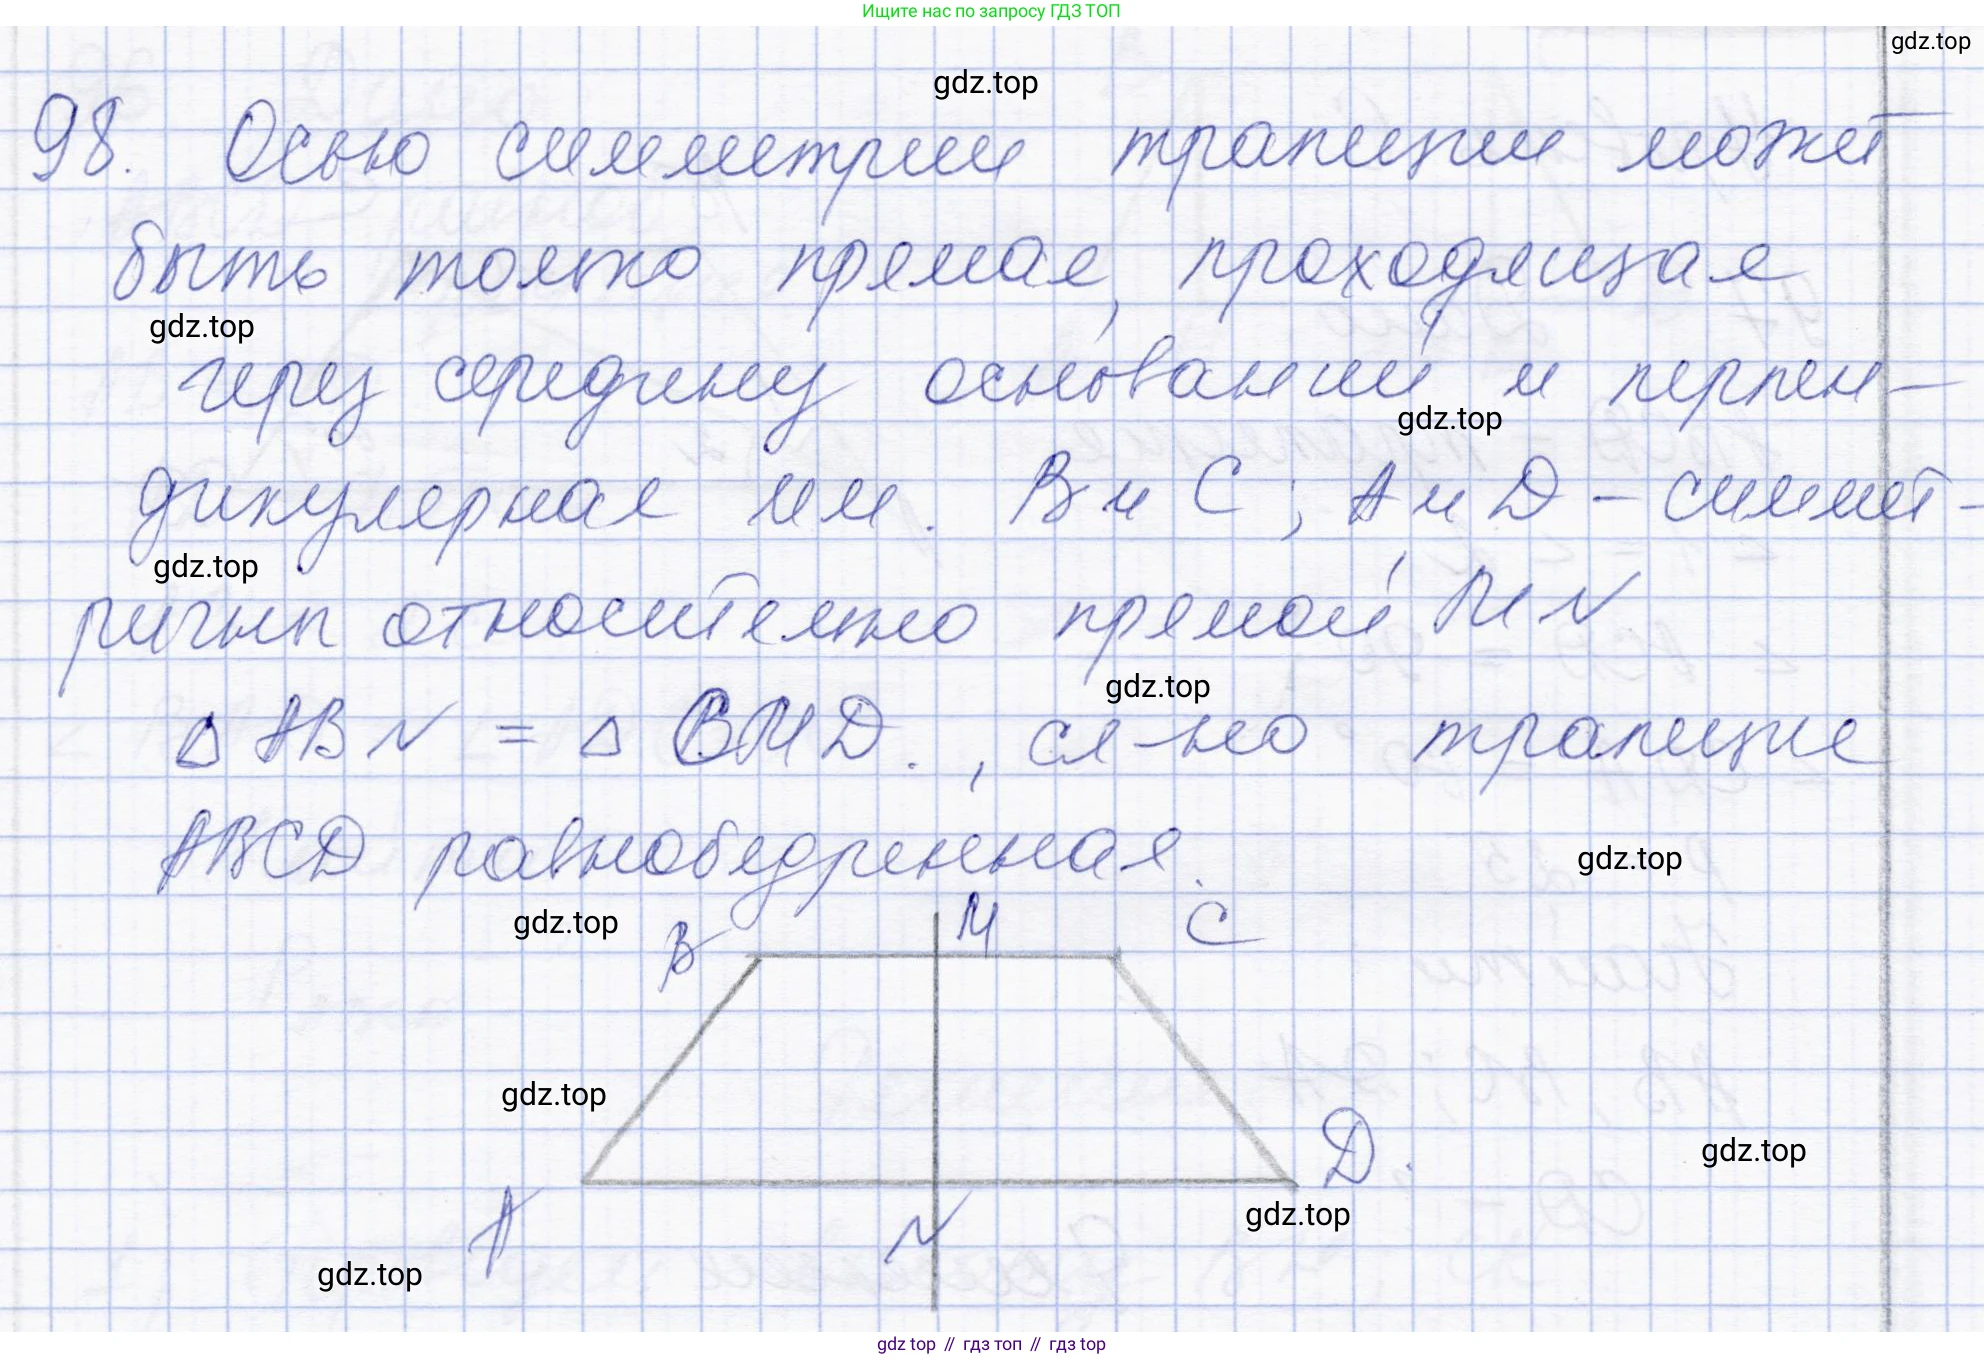 Ищите нас по запросу ГДЗ ТОП
gdz.top
gdz.top
98. Осью симметрии трапеции может
быть только прямая, проходящая
gdz.top
через середину оснований и перпен-
gdz.top
дикулярная им. В и С; А и D - симмет-
gdz.top
ричны относительно прямой MN
gdz.top
△ ABN = △ CMD., сл-но трапеция
ABCD равнобедренная.
gdz.top
gdz.top
B M C
gdz.top
D.
gdz.top
A N
gdz.top
gdz.top
gdz top // гдз топ // гдз top